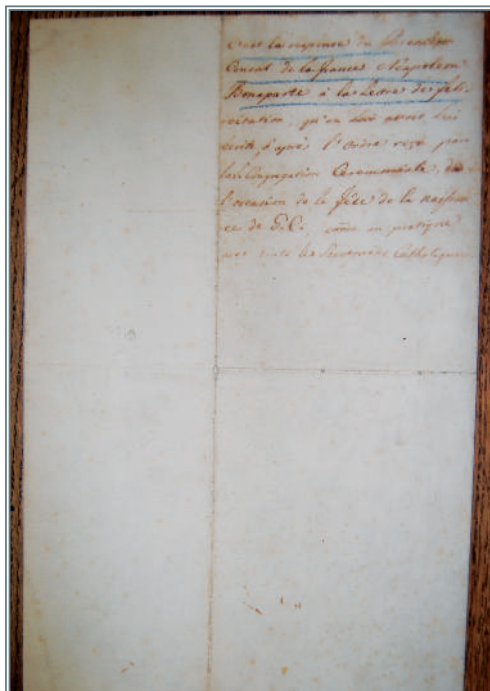 C'est la reponse du
Consul de la france Napoleon
Bonaparte à la Lettre de feli-
citation, qu'on lui avoit
écrite, d'après l'Ordre reçu par
la Congregation Ceremoniale,
l'occasion de la fête de la naissan
ce de G.C., come on pratique
avec les Catholiques